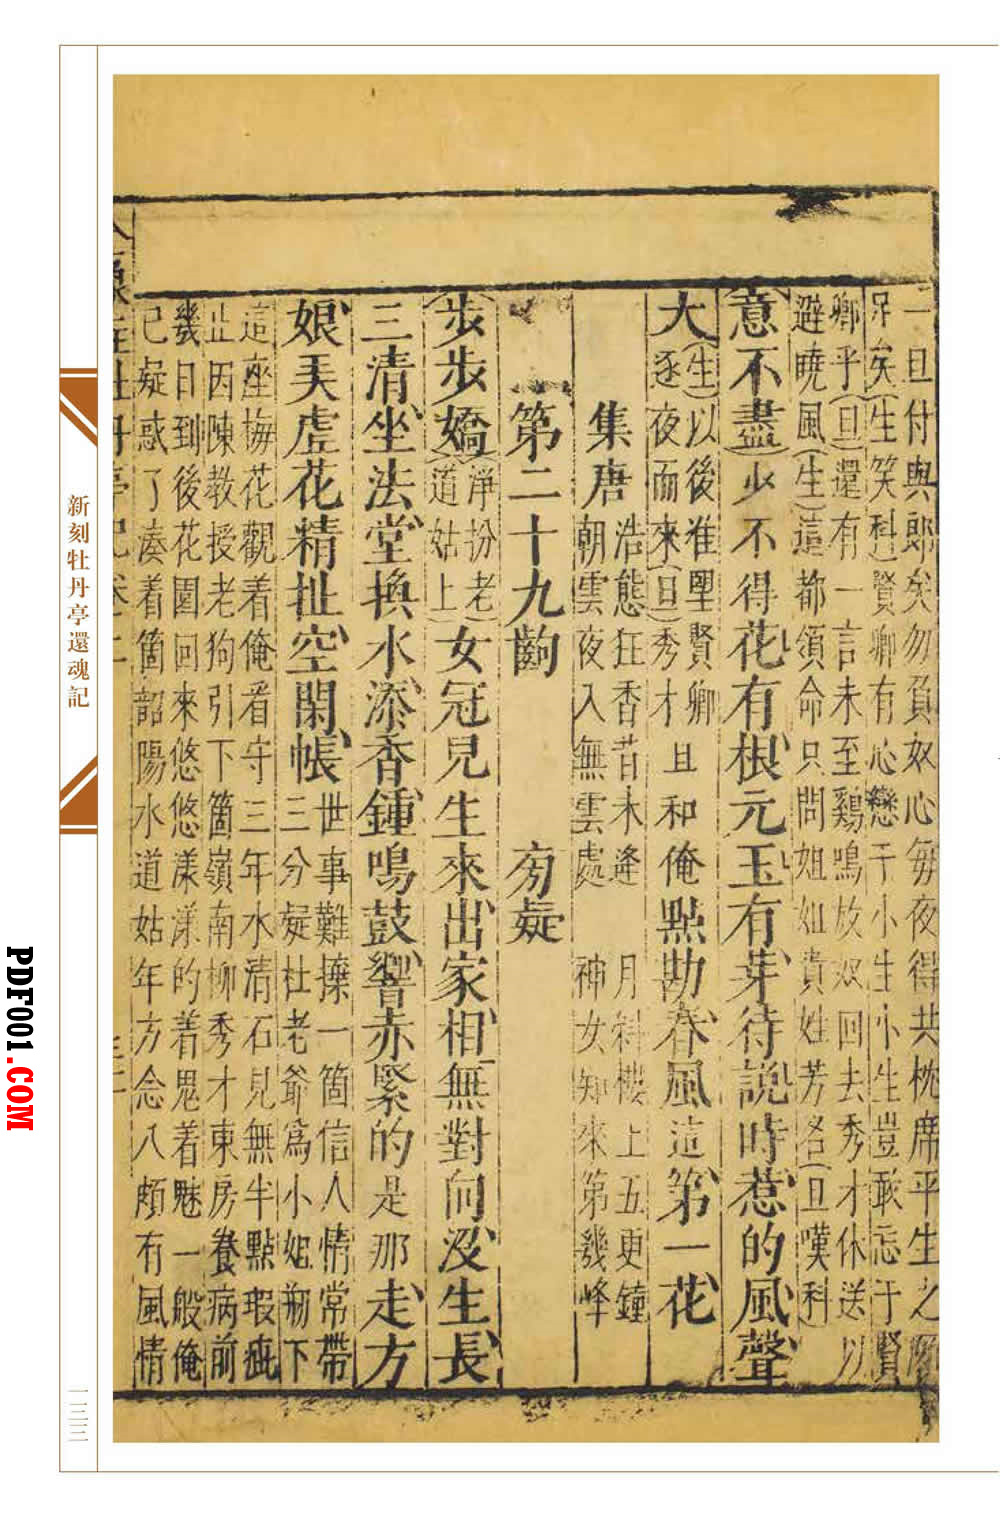 一旦付與郎矣勿負奴心每夜得共枕席平生之願
足矣(生笑科)賢卿有心戀于小生小生豈敢忘于賢
卿乎(旦)還有一言未至鷄鳴放奴回去秀才休送以
避曉風(生)這都領命只問姐姐貴姓芳名(旦嘆科)
意不盡(少不得花有根元玉有芽待說時惹的風聲
大(生)以後准望賢卿
逐夜而來(旦)秀才且和俺點勘春風這第一花
集唐
浩態狂香昔未逢 月斜樓上五更鐘
朝雲夜入無雲處 神女知來第幾峰
第二十九齣 旁疑
步步嬌(淨扮老
道姑上)女冠兒生來出家相無對向沒生長
三清坐法堂換水添香鐘鳴鼓響赤緊的是那走方
娘弄虛花精扯空閑帳世事難擡一箇信人情常帶
三分疑杜老爺爲小姐剏下
這座梅花觀着俺看守三年水清石見無半點瑕疵
止因陳教授老狗引下箇嶺南柳秀才東房養病前
幾日到後花園回來悠悠漾漾的着鬼着魅一般俺
已疑惑了湊着箇韶陽水道姑年方念八頗有風情
牡丹亭記卷二
新刻牡丹亭還魂記
一三三
PDF001.COM